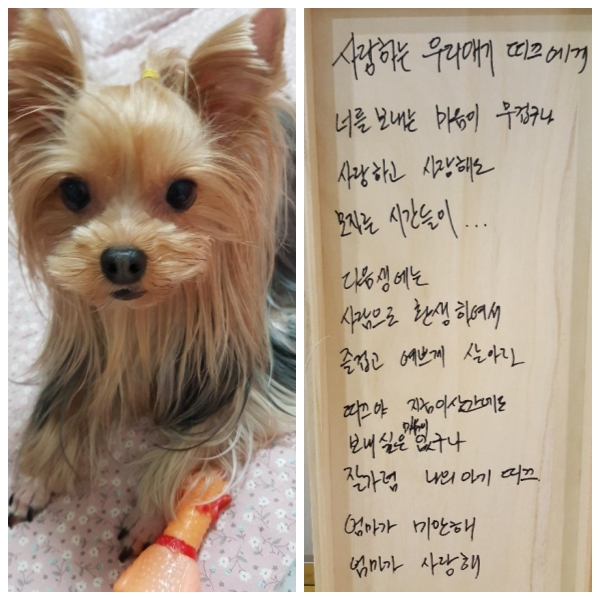 사랑하는 우리애기 띠쯔에게
너를 보내는 마음이 무겁구나
사랑하고 사랑해도
모자른 시간들이 ...
다음생에는
사람으로 환생하여서
즐겁고 예쁘게 살아라
띠쯔야
보내 싶은 마음이 없구나
잘가렴 나의 아기 띠쯔.
엄마가 미안해
엄마가 사랑해